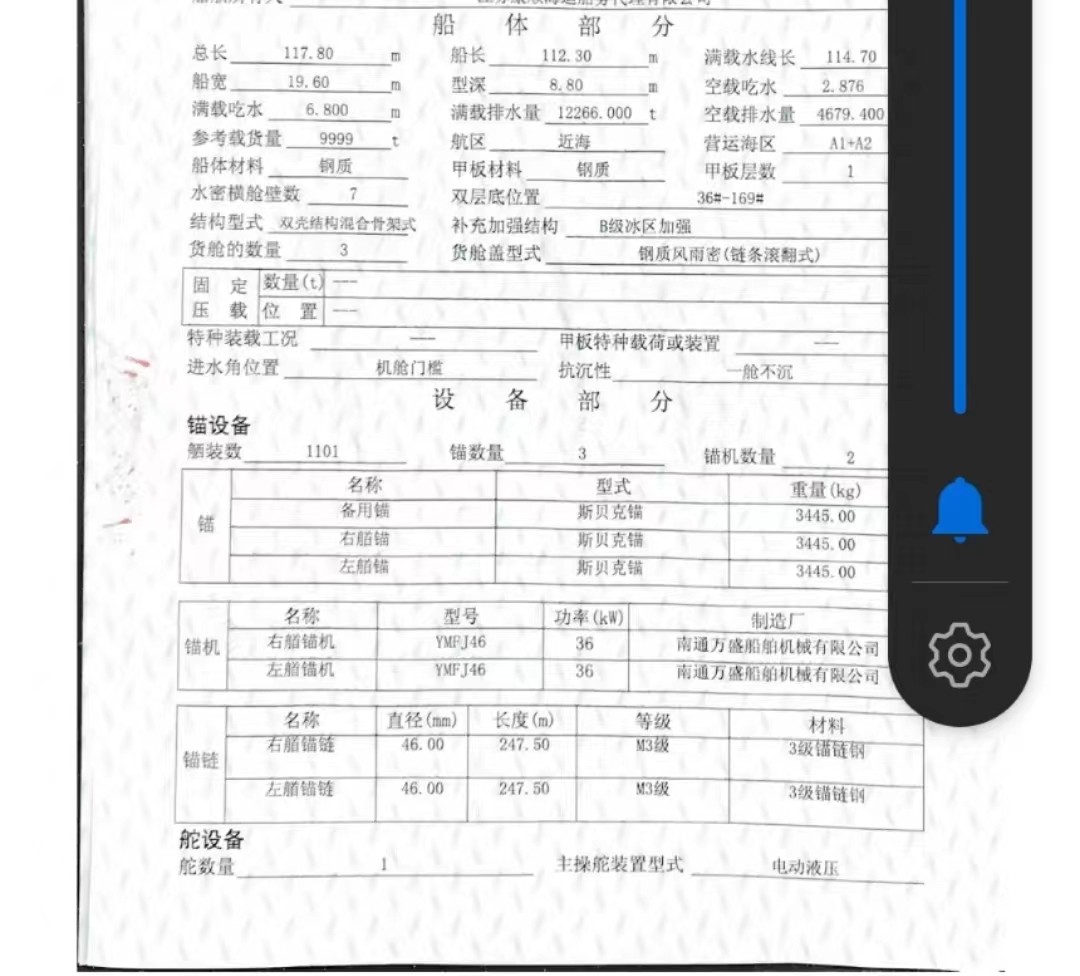 船 体 部 分
总长 117.80 m 船长 112.30 m 满载水线长 114.70
船宽 19.60 m 型深 8.80 m 空载吃水 2.876
满载吃水 6.800 m 满载排水量 12266.000 t 空载排水量 4679.400
参考载货量 9999 t 航区 近海 营运海区 A1+A2
船体材料 钢质 甲板材料 钢质 甲板层数 1
水密横舱壁数 7 双层底位置 36#-169#
结构型式 双壳结构混合骨架式 补充加强结构 B级冰区加强
货舱的数量 3 货舱盖型式 钢质风雨密(链条滚翻式)
固 定 数量(t) ---
压 载 位 置 ---
特种装载工况 --- 甲板特种载荷或装置 ---
进水角位置 机舱门槛 抗沉性 一舱不沉
设 备 部 分
锚设备
舾装数 1101 锚数量 3 锚机数量 2
锚
名称 型式 重量(kg)
备用锚 斯贝克锚 3445.00
右艏锚 斯贝克锚 3445.00
左艏锚 斯贝克锚 3445.00
锚机
名称 型号 功率(kW) 制造厂
右艏锚机 YMFJ46 36 南通万盛船舶机械有限公司
左艏锚机 YMFJ46 36 南通万盛船舶机械有限公司
锚链
名称 直径(mm) 长度(m) 等级 材料
右艏锚链 46.00 247.50 M3级 3级锚链钢
左艏锚链 46.00 247.50 M3级 3级锚链钢
舵设备
舵数量 1 主操舵装置型式 电动液压